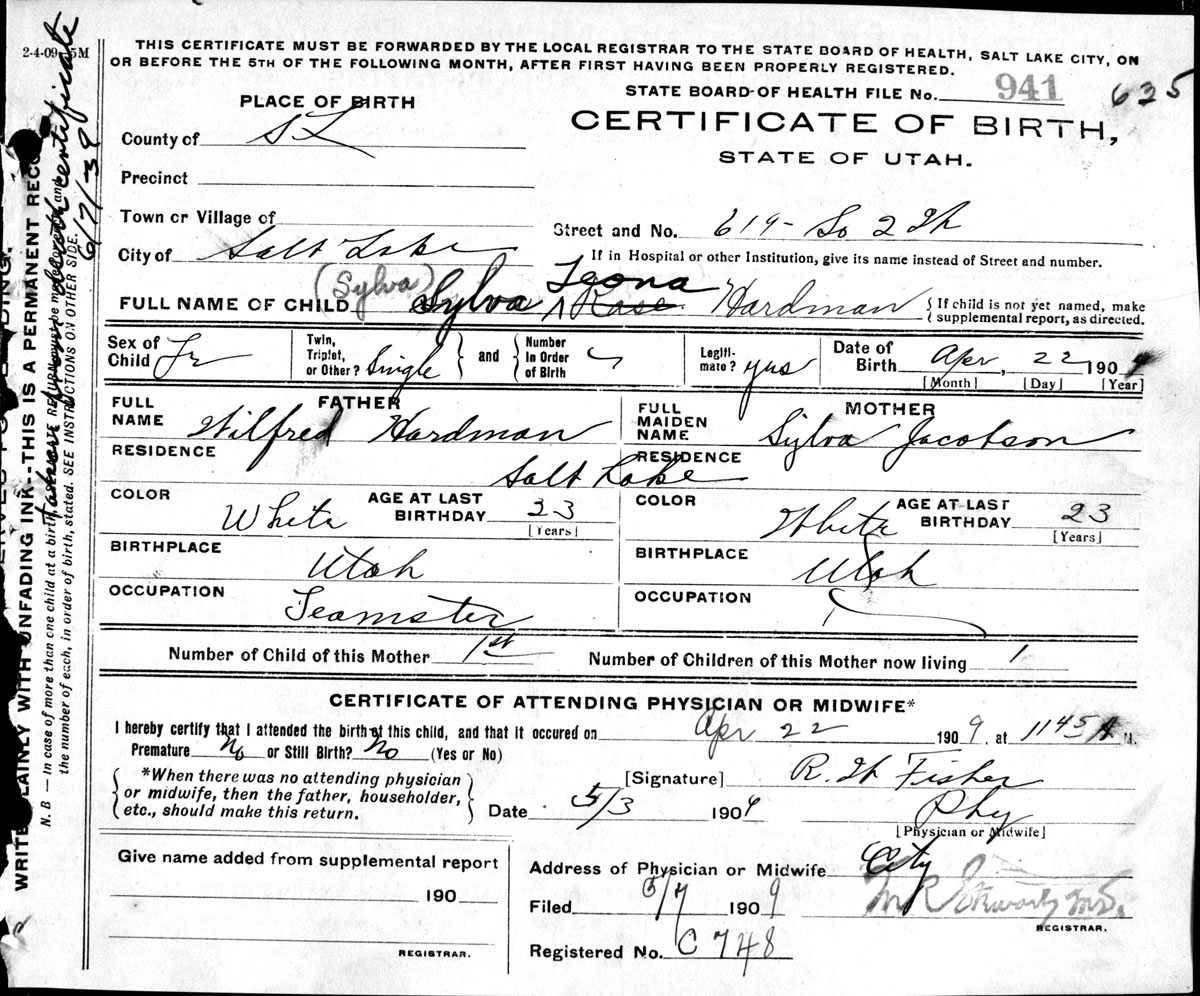 2-4-09-5M
THIS CERTIFICATE MUST BE FORWARDED BY THE LOCAL REGISTRAR TO THE STATE BOARD OF HEALTH, SALT LAKE CITY, ON
OR BEFORE THE 5TH OF THE FOLLOWING MONTH, AFTER FIRST HAVING BEEN PROPERLY REGISTERED.
STATE BOARD OF HEALTH FILE No. 941 635
PLACE OF BIRTH
CERTIFICATE OF BIRTH,
STATE OF UTAH.
County of S L
Precinct
Town or Village of
Street and No. 619 - So 2 W
City of Salt Lake
If in Hospital or other Institution, give its name instead of Street and number.
(Sylva) Leona
FULL NAME OF CHILD Sylva ∧ Rase Hardman { If child is not yet named, make
supplemental report, as directed.
Sex of Child Fe
Twin, Triplet, or Other? Single } and { Number in Order of Birth
Legiti- mate? yes
Date of Birth Apr, 22 1909
[Month] [Day] [Year]
FATHER
FULL NAME Wilfred Hardman
MOTHER
FULL MAIDEN NAME Sylva Jacobson
RESIDENCE Salt Lake RESIDENCE
COLOR White AGE AT LAST BIRTHDAY 23 [Years]
COLOR White AGE AT LAST BIRTHDAY 23 [Years]
BIRTHPLACE Utah
BIRTHPLACE Utah
OCCUPATION Teamster
OCCUPATION
Number of Child of this Mother 1st Number of Children of this Mother now living 1
CERTIFICATE OF ATTENDING PHYSICIAN OR MIDWIFE*
I hereby certify that I attended the birth of this child, and that it occured on Apr 22 1909, at 1145 A M.
Premature No or Still Birth? No (Yes or No)
{ *When there was no attending physician
or midwife, then the father, householder,
etc., should make this return. }
[Signature] R. W Fisher
Date 5/3 1909 Phy
[Physician or Midwife]
Give name added from supplemental report
190
REGISTRAR.
Address of Physician or Midwife City
Filed 5/7 1909
REGISTRAR.
Registered No. C 748
WRITE PLAINLY WITH UNFADING INK--THIS IS A PERMANENT RECO
N. B.—In case of more than one child at a birth, a RETURN must be made
the number of each, in order of birth, stated. SEE INSTRUCTIONS ON OTHER SIDE.
certificate
6/7/39